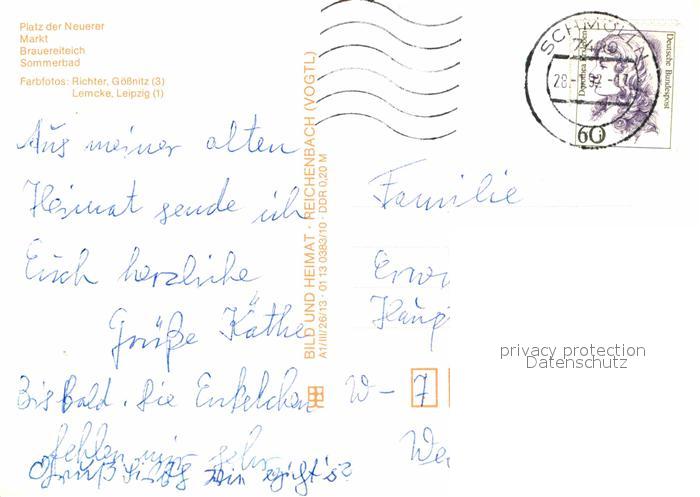 Platz der Neuerer
Markt
Brauereiteich
Sommerbad
Farbfotos: Richter, Gößnitz (3)
Lemcke, Leipzig (1)
Aus meiner alten
Heimat sende ich
Euch herzliche
Grüße Käthe
Bis Bald. Die Enkelchen
fehlen mir sehr
Gruß wie geht's?
BILD UND HEIMAT · REICHENBACH (VOGTL)
A1/III/26/13 · 01 13 0383/10 · DDR 0,20 M
SCHMÖLLN
28.-1.92.-17
Deutsche Bundespost
60
Familie
Erwi
Haup
W-7
We
privacy protection
Datenschutz